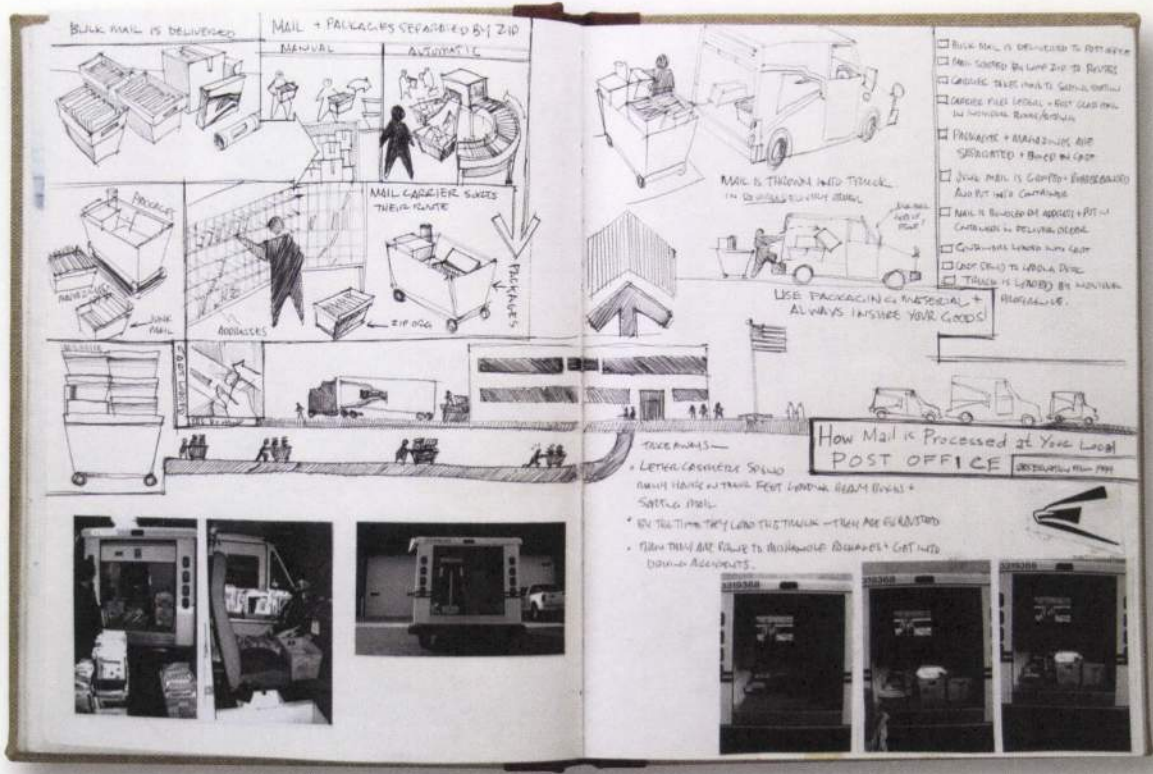 BULK MAIL IS DELIVERED
MAIL + PACKAGES SEPARATED BY ZIP
MANUAL
AUTOMATIC
PACKAGES
MAGAZINES
JUNK
MAIL
ADDRESSES
MAIL CARRIER SORTS
THEIR ROUTE
ZIP ORG
PACKAGES
MAIL IS THROWN INTO TRUCK
IN DELIVERY ORDER
USE PACKAGING MATERIAL +
ALWAYS INSURE YOUR GOODS!
BULK MAIL IS DELIVERED TO POST OFFICE
MAIL SORTED BY ZIP TO ROUTES
CARRIER TAKES MAIL TO STATION
CARRIER FILES
IN INDIVIDUAL
PACKAGES + MAGAZINES ARE
SEPARATED + IN CART
JUNK MAIL IS + RUBBERBANDED
AND PUT INTO CONTAINER
MAIL IS BUNDLED BY ADDRESS + PUT IN
CONTAINERS IN DELIVERY ORDER
CONTAINERS LOADED INTO CART
CART TO LOADING DOCK
TRUCK IS LOADED BY INDIVIDUAL
PREFERENCE.
How Mail is Processed at Your Local
POST OFFICE
TAKEAWAYS—
LETTER CARRIERS SPEND
MANY HOURS ON THEIR FEET LOADING HEAVY +
SORTING MAIL
BY THE TIME THEY LOAD THE TRUCK — THEY ARE EXHAUSTED
THEN THEY ARE PRONE TO MISHANDLE PACKAGES + GET INTO
DRIVING ACCIDENTS.
3219368